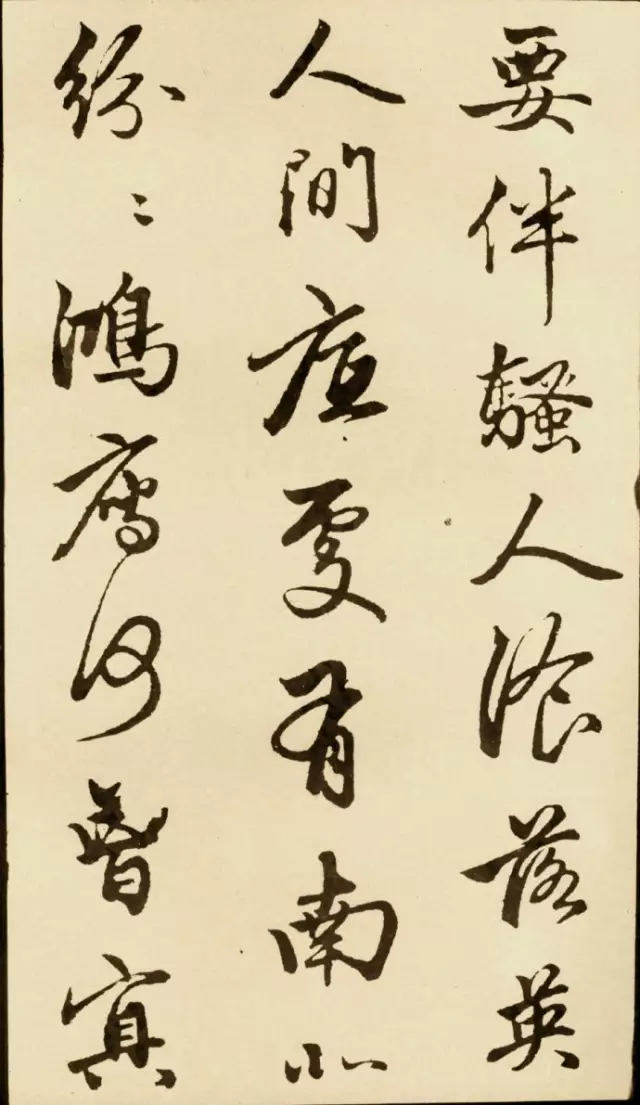 要伴騷人湌落英
人間底處有南北
紛〻鴻鴈何曾冥